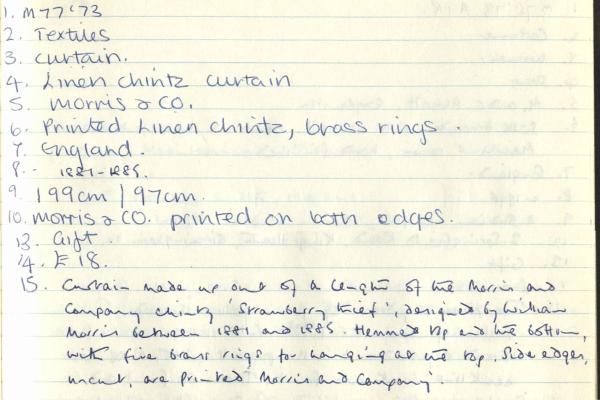 1. M77'73
2. Textiles
3. curtain.
4. Linen chintz curtain
5. Morris & CO.
6. Printed Linen chintz, brass rings.
7. England.
8. - 1881-1885.
9. 199cm | 97cm.
10. Morris & CO. printed on both edges.
13. Gift
14. E18.
15. Curtain made up out of a length of the Morris and
Company chintz 'Strawberry thief', designed by William
Morris between 1881 and 1885. Hemmed top and the bottom,
with five brass rings for hanging at the top. Side edges,
uncut, are printed Morris and Company.